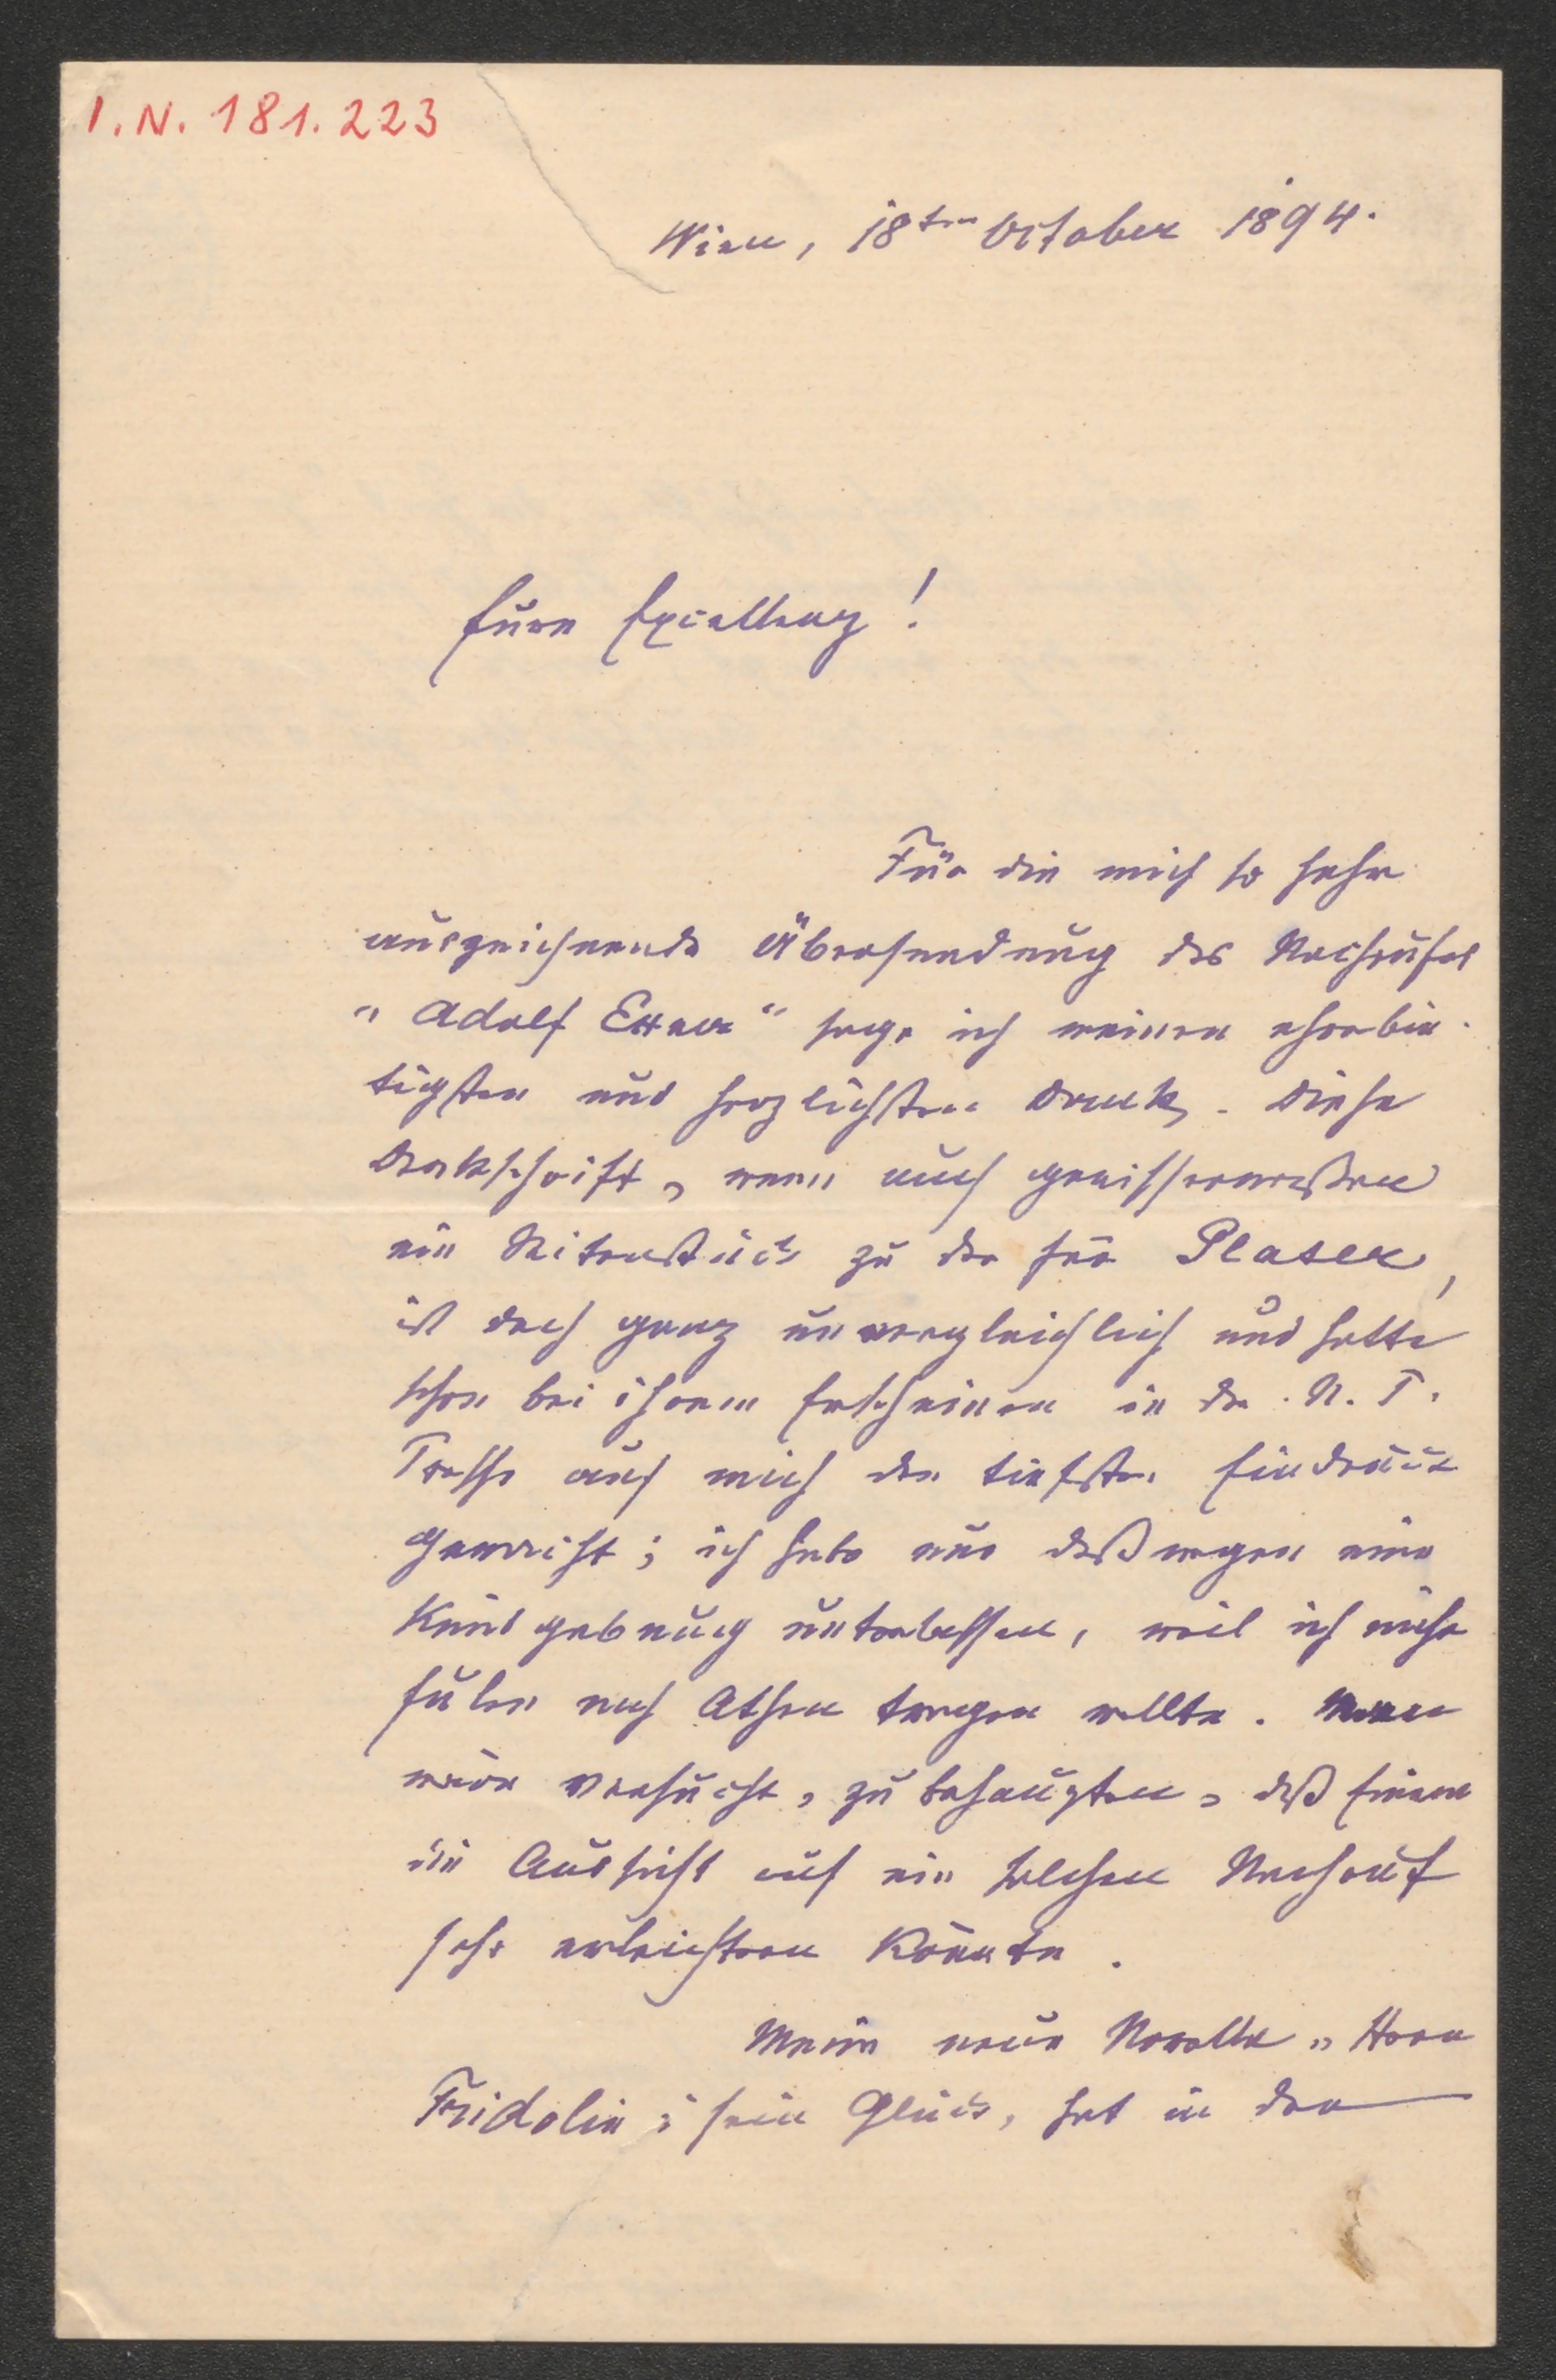 I.N. 181.223
Wien, 18ten October 1894.
Eure Excellenz!
Für die mich so sehr
auszeichnende Übersendung des Nachrufes
„Adolf Exner“ sage ich meinen ehrerbie-
tigsten und herzlichsten Dank. Diese
Denkschrift, wenn auch gewissermaßen
ein Seitenstück zu der für Plaser,
ist doch ganz unvergleichlich und hatte
schon bei ihrem Erscheinen in der N. F.
Presse auf mich den tiefsten Eindruck
gemacht; ich habe nur deßwegen eine
Kundgebung unterlassen, weil ich nicht
Eulen nach Athen tragen wollte. Man
wäre versucht, zu behaupten, daß Einem
die Aussicht auf ein solchen Nachruf
sehr erleichtern könnte.
Meine neue Novelle „Herr
Fridolin & sein Glück, hat in der